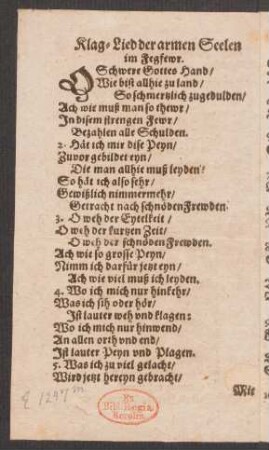 Klag-Lied der armen Seelen
im Fegfewr.
O Schwere Gottes Hand/
Wie bist allhie zu land/
So schmertzlich zugedulden/
Ach wie muß man so thewr/
In disem strengen Fewr/
Bezahlen alle Schulden.
2. Hät ich mir dise Peyn/
Zuvor gebildet eyn/
Die man allhie muß leyden/
So hät ich also sehr/
Gewißlich nimmermehr/
Getracht nach schnöden Frewden.
3. O weh der Eytelkeit/
O weh der kurtzen Zeit/
O weh der schnöden Frewden.
Ach wie so grosse Peyn/
Nimm ich darfür jetzt eyn/
Ach wie viel muß ich leyden.
4. Wo ich mich nur hinkehr/
Was ich sih oder hör/
Ist lauter weh und klagen:
Wo ich mich nur hinwend/
An allen orth und end/
Ist lauter Peyn und Plagen.
5. Was ich zu viel gelacht/
Wird jetzt hereyn gebracht/
Mit